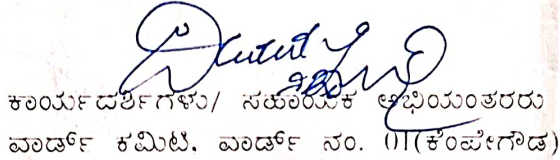 ಕಾರ್ಯದರ್ಶಿಗಳು/ ಸಹಾಯಕ ಅಭಿಯಂತರರು
ವಾರ್ಡ್ ಕಮಿಟಿ, ವಾರ್ಡ್ ನಂ. 01(ಕೆಂಪೇಗೌಡ)